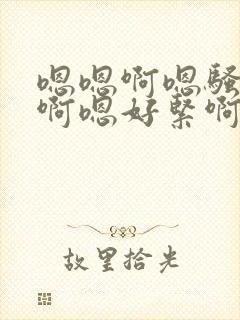 嗯嗯啊嗯骚
啊嗯好紧啊
故里拾光